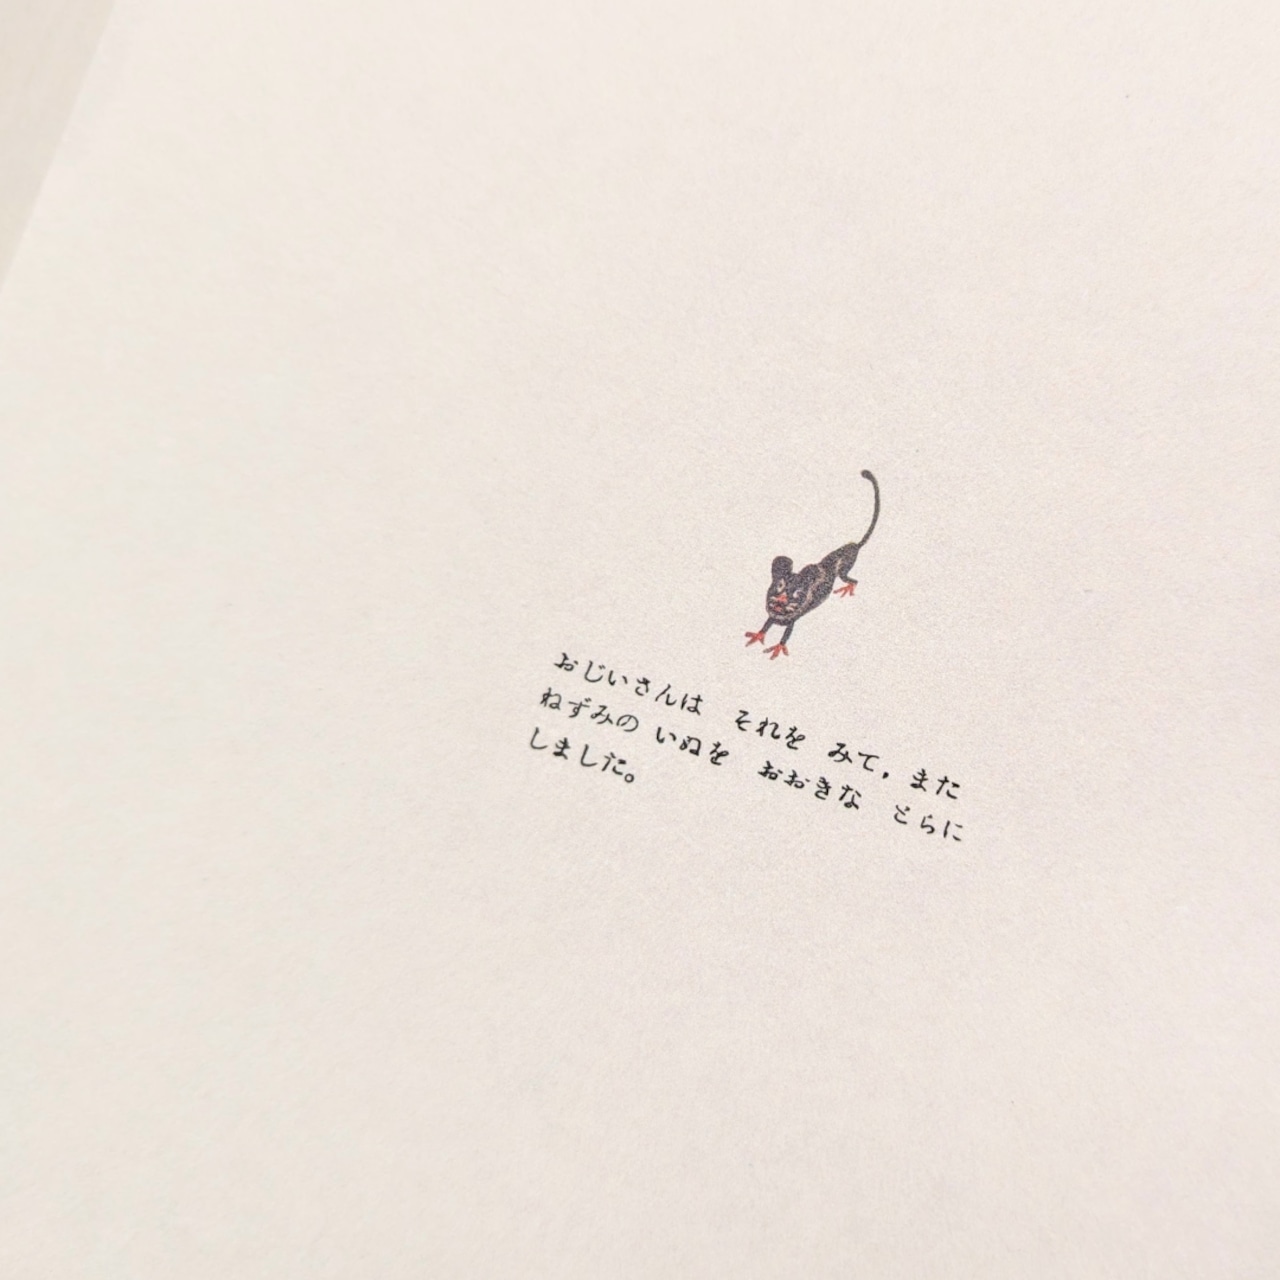 おじいさんは それを みて, また
ねずみの いぬを おおきな とらに
しました。